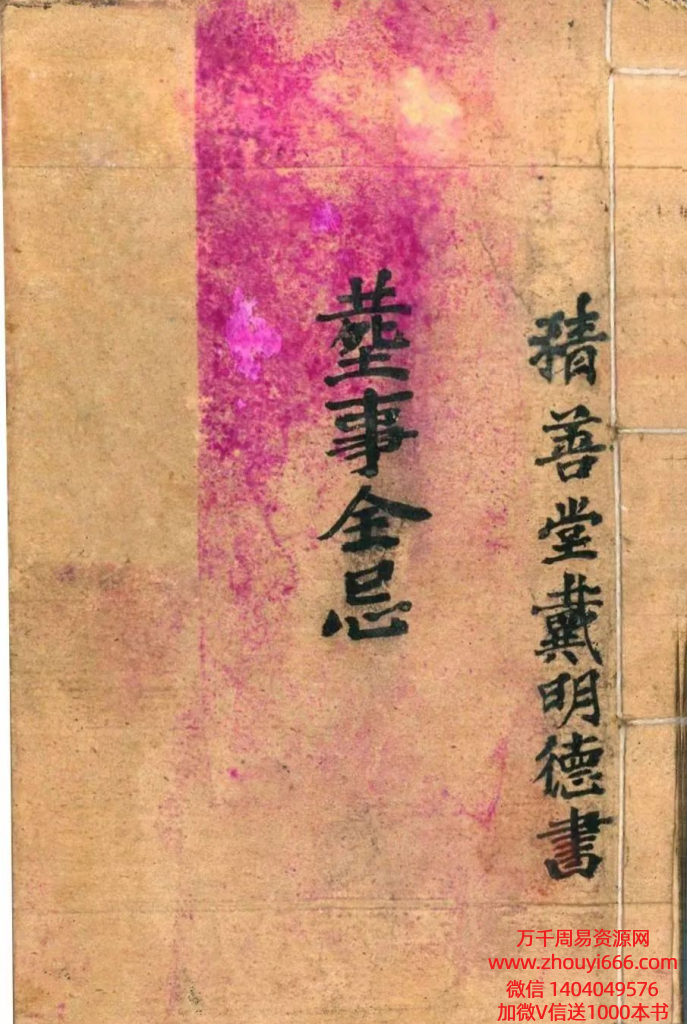 積善堂戴明德書
塟事全忌
万千周易资源网
www.zhouyi666.com
微信 1404049576
加微V信送1000本书